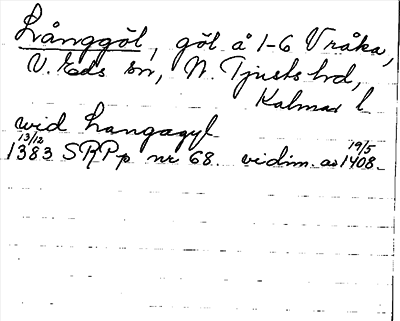 Långgöl, göl å 1-6 Vråka,
V. Eds sn, N. Tjusts hd,
Kalmar l.
wid Langagyl
13/12 19/5
1383 SRPp nr 68. vidim. av 1408.